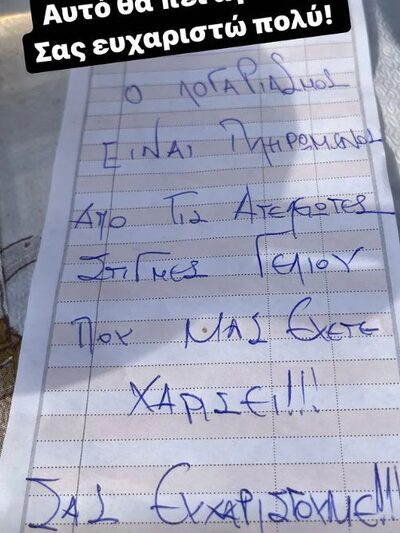 Αυτό θα πει
Σας ευχαριστώ πολύ!
Ο ΛΟΓΑΡΙΑΣΜΟΣ
ΕΙΝΑΙ ΠΛΗΡΩΜΕΝΟΣ
ΑΠΟ ΤΙΣ ΑΤΕΛΕΙΩΤΕΣ
ΣΤΙΓΜΕΣ ΓΕΛΙΟΥ
ΠΟΥ ΜΑΣ ΕΧΕΤΕ
ΧΑΡΙΣΕΙ!!!
ΣΑΣ ΕΥΧΑΡΙΣΤΟΥΜΕ!!!